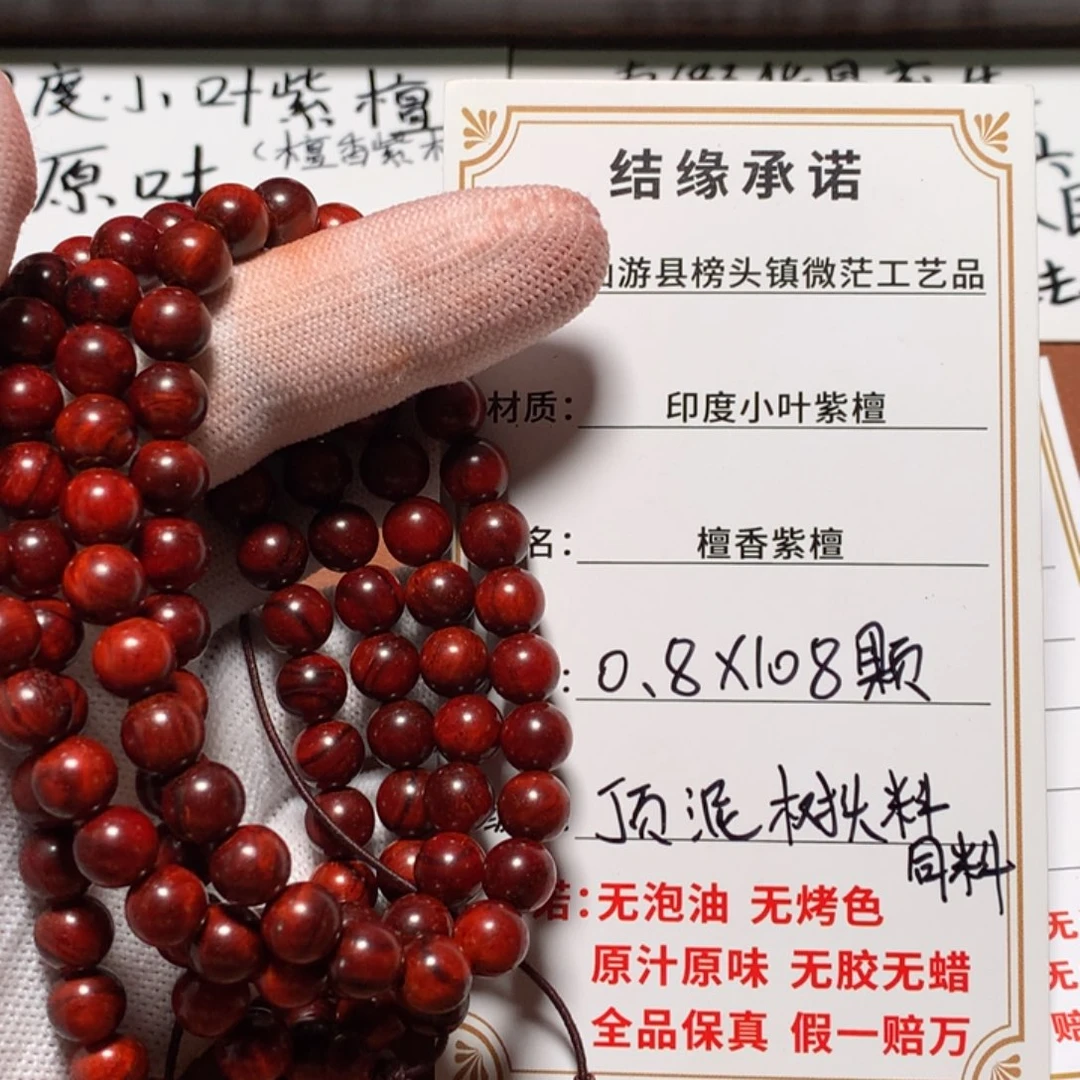 度·小叶紫檀
(檀香紫
原味
结缘承诺
游县榜头镇微茫工艺品
材质：印度小叶紫檀
名：檀香紫檀
：0.8X108颗
顶泥树头料
同料
诺：无泡油 无烤色
原汁原味 无胶无蜡
全品保真 假一赔万
无
无
赔